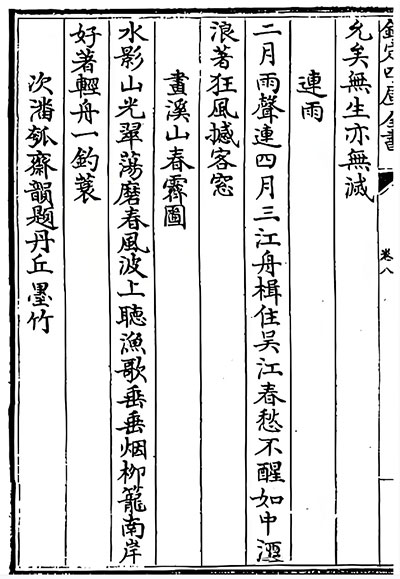 欽定四庫全書
卷八
允矣無生亦無滅
連雨
二月雨聲連四月三江舟楫住吳江春愁不醒如中酒
浪著狂風撼客窓
畫溪山春霽圖
水影山光翠蕩磨春風波上聽漁歌垂垂烟柳籠南岸
好著輕舟一釣蓑
次潘瓠齋韻题丹丘墨竹